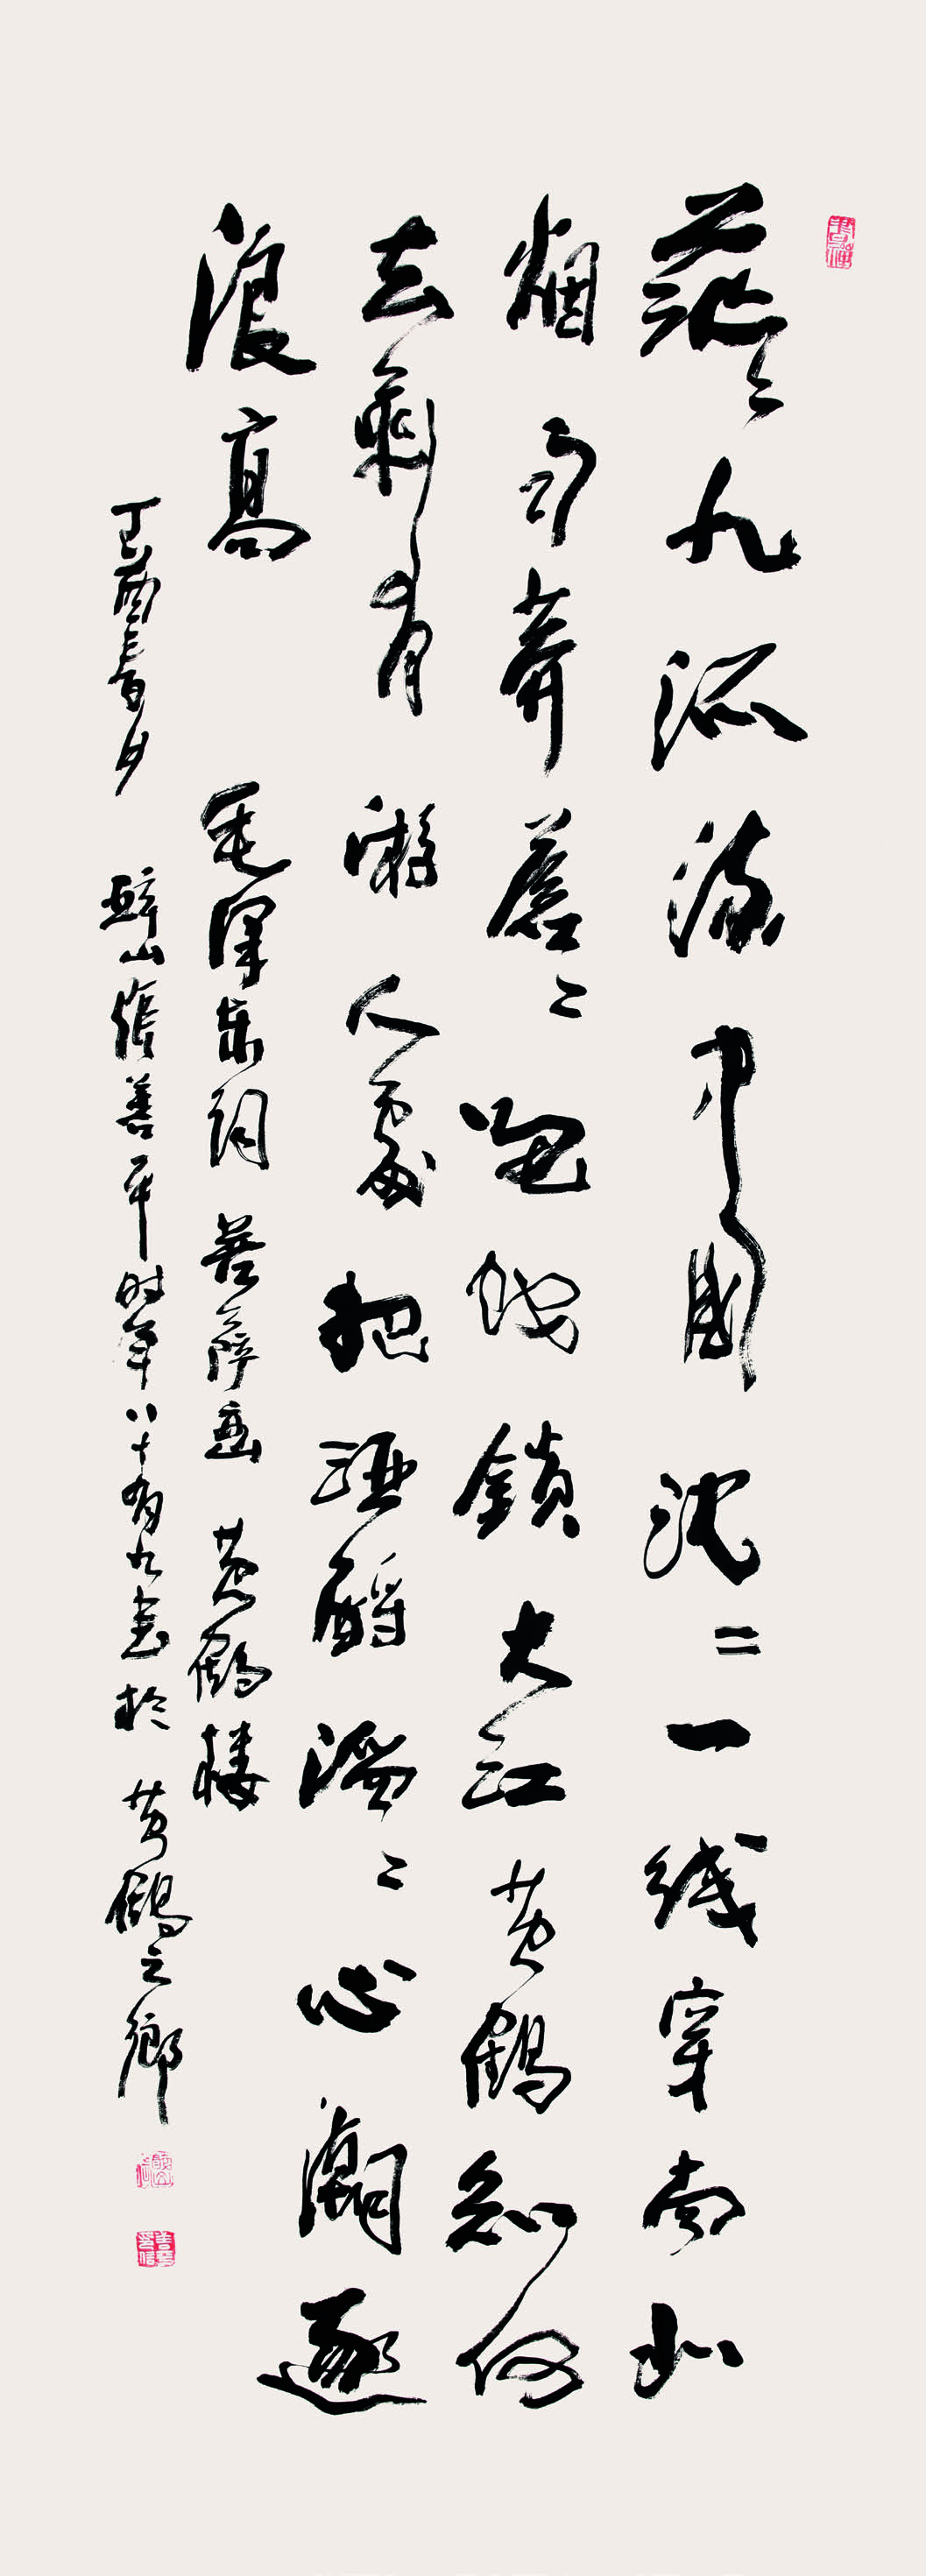 茫々九派流中國沈々一线穿南北
烟雨莽蒼々龜蛇鎖大江黄鶴知何
去剩有游人處把酒酹滔々心潮逐
浪高 毛澤東詞 菩薩蛮 黄鶴楼
丁酉春月 璧山張善平时年八十有九書於 黄鶴之鄉